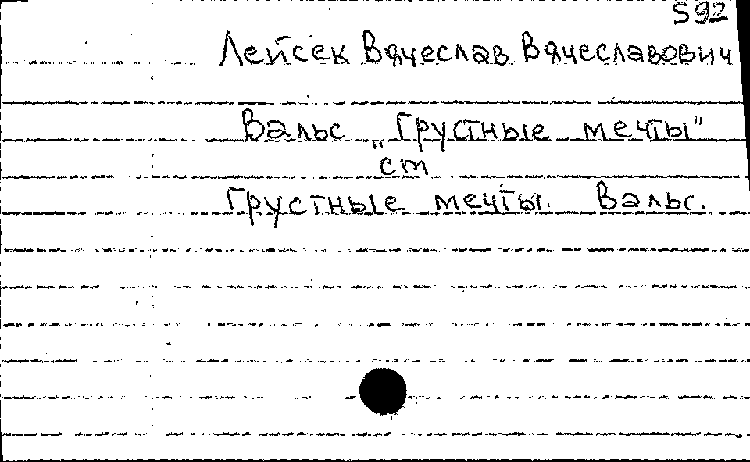 592
Лейсек Вячеслав Вячеславович
Вальс „Грустные мечты"
ст
Грустные мечты. Вальс.